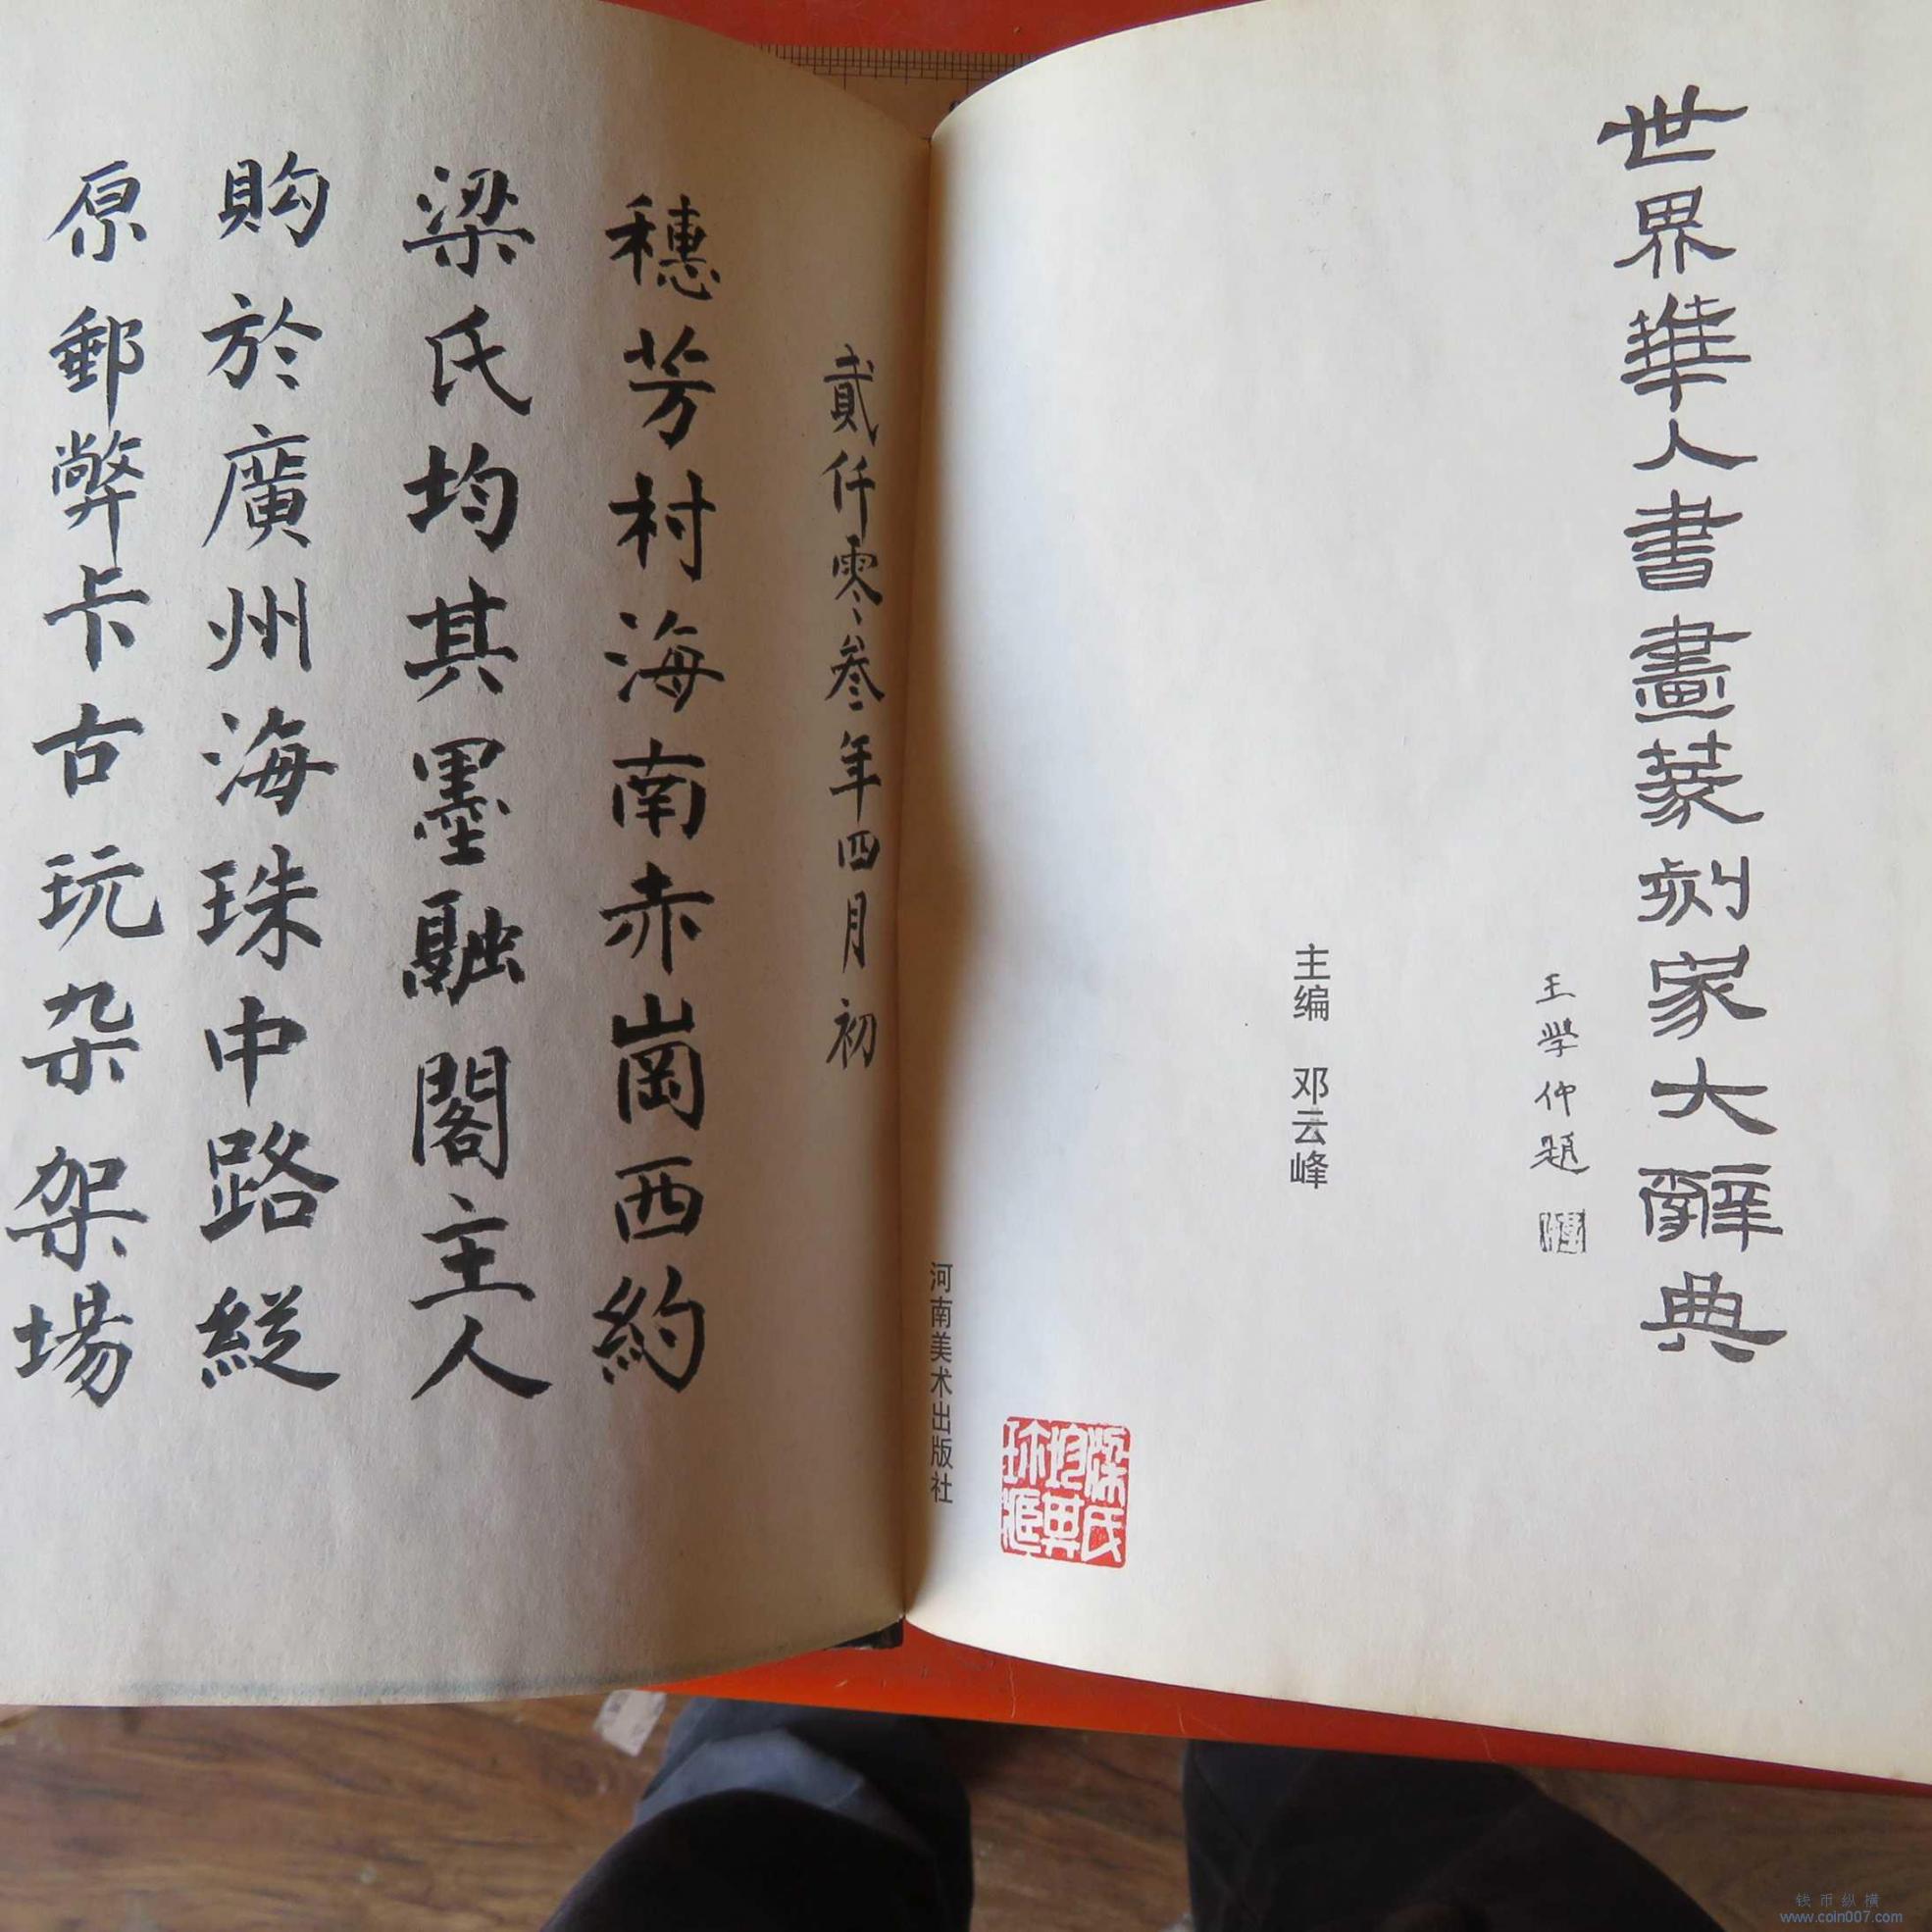 世界華人書畫篆刻家大辭典
王學仲題
主编 邓云峰
河南美术出版社
梁氏
均其
珎藏
貳仟零叁年四月初
穗芳村海南赤崗西約
梁氏均其墨融閣主人
購於廣州海珠中路縱
原郵弊卡古玩杂架場
钱币纵横
www.coin007.com